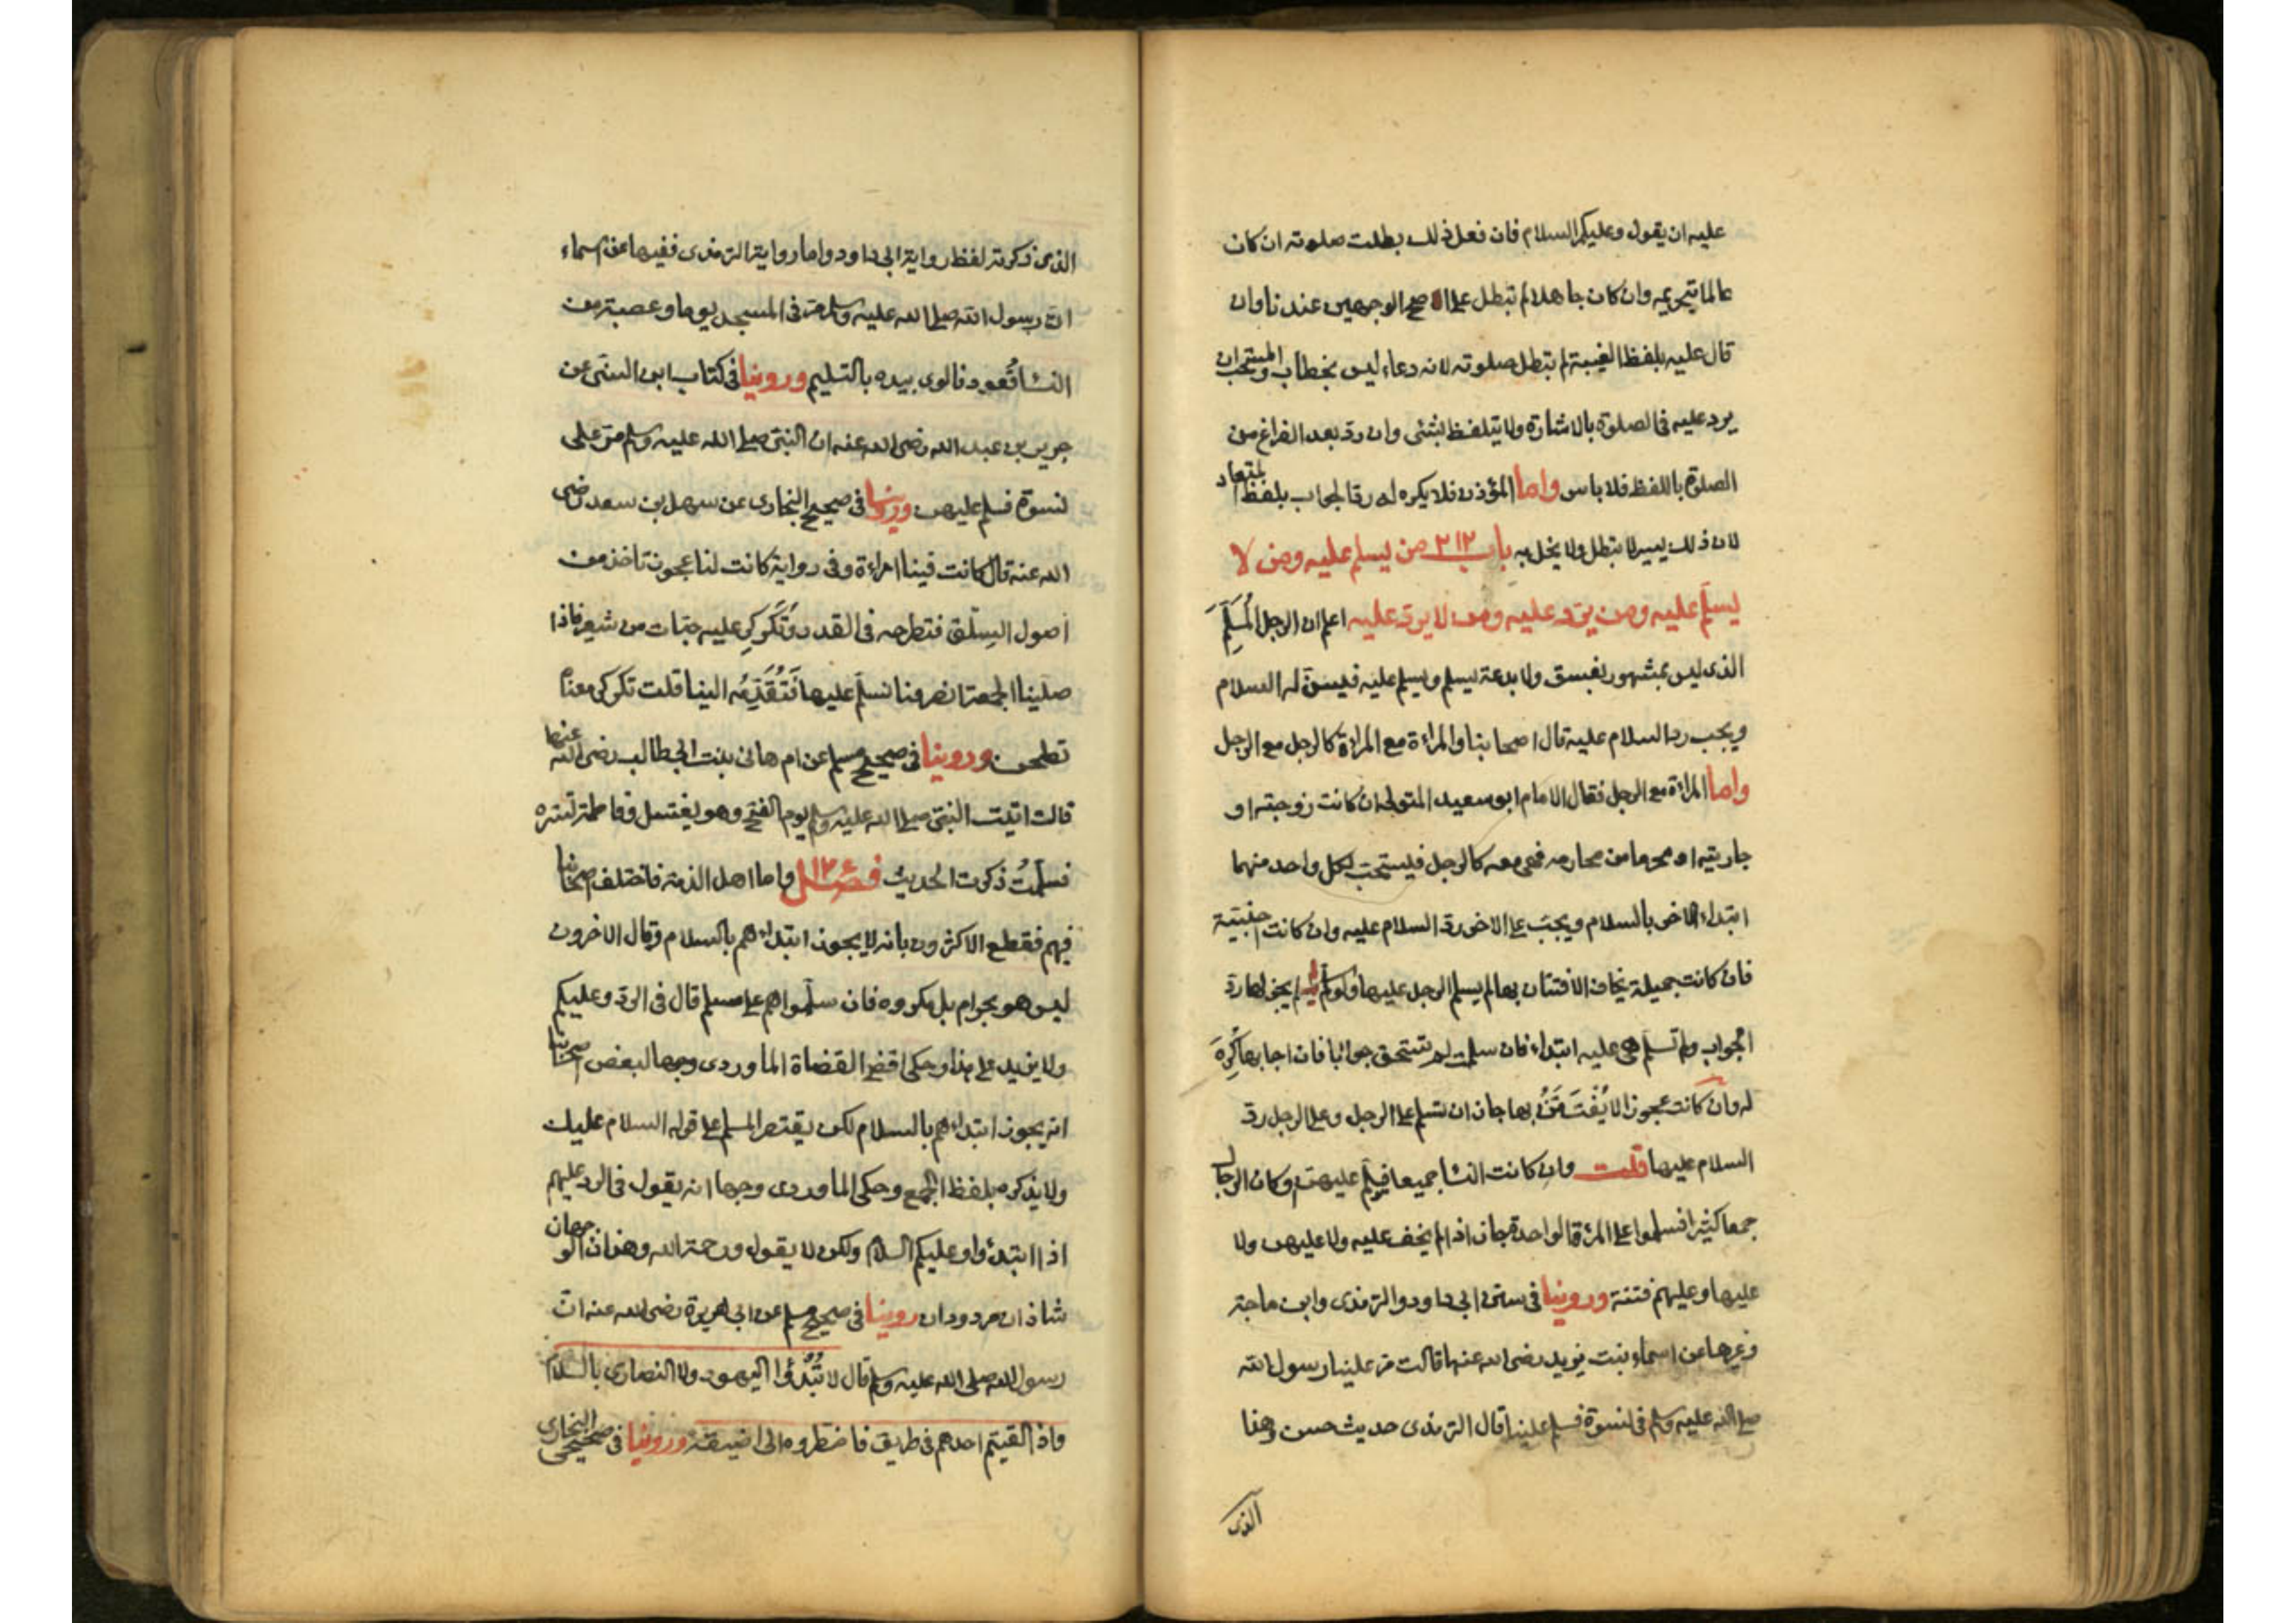 عليه ان يقول وعليكم السلام فان فعل ذلك بطلت صلوته ان كان
عالما بتحريمه وان كان جاهلا لم تبطل على الاصح الوجهين عندنا وان
قال عليه بلفظ الغيبة لم تبطل صلوته لانه دعاء ليس بخطاب والمستحب ان
يرد عليه فى الصلوة بالاشارة ولا يتلفظ بشئى وان رد بعد الفراغ من
الصلوة باللفظ فلا باس واما المؤذن فلا يكره له رد الجواب بلفظ المتعاد
لان ذلك يسير لا يبطل ولا يخل به باب ٢١٢ من يسلم عليه ومن لا
يسلم عليه ومن يرد عليه ومن لا يرد عليه اعلم ان الرجل المُسلِمَ
الذى ليس بمشهور بفسق ولا بدعة يسلم ويسلم عليه فيسن له السلام
ويجب رد السلام عليه قال اصحابنا والمراءة مع المراءة كالرجل مع الرجل
واما المراءة مع الرجل فقال الامام ابو سعيد المتولى ان كانت زوجته او
جاريته او محرما من محارمه فهى معه كالرجل فيستحب لكل واحد منهما
ابتداء الاخر بالسلام ويجب على الاخر رد السلام عليه وان كانت اجنبية
فان كانت جميلة يخاف الافتتان بها لم يسلم الرجل عليها ولو سلم لم يجز لها رد
الجواب ولم تسلم هى عليه ابتداء فان سلمت لم تستحق جوابا فان اجابها كُرِهَ
له وان كانت عجوزا لا يُفْتَتَنُ بها جاز ان تسلم على الرجل وعلى الرجل رد
السلام عليها قلت وان كانت النسا جميعا فيسلم عليهن وكان الرجال
جمعا كثيرا فسلموا على المرءة الواحدة جاز اذا لم يخف عليه ولا عليهن ولا
عليها وعليهم فتنة وروينا فى سنن ابى داود والترمذى وابن ماجة
وغيرها عن اسماء بنت يزيد رضى الله عنها قالت مر علينا رسول الله
صلى الله عليه وسلم فى نسوة فسلم علينا قال الترمذى حديث حسن وهذا
الذى
الذى ذكرته لفظ رواية ابى داود واما رواية الترمذى ففيها عن اسماء
ان رسول الله صلى الله عليه وسلم مر فى المسجد يوما وعصبة من
النسا قُعود فالوى بيده بالتسليم وروينا فى كتاب ابن السنى عن
جرير بن عبد الله رضى الله عنه ان النبى صلى الله عليه وسلم مر على
نسوة فسلم عليهن وروينا فى صحيح البخارى عن سهل بن سعد رضى
الله عنه قال كانت فينا امراءة وفى رواية كانت لنا عجوز تاخذ من
اصول السِلق فتطرحه فى القدر وتُكَركِر عليه حبّات من شعير فاذا
صلينا الجمعة انصرفنا نسلم عليها فَتُقَدِّمُه الينا قلت تكركر معناه
تطحن وروينا فى صحيح مسلم عن ام هانى بنت ابى طالب رضى الله عنها
قالت اتيت النبى صلى الله عليه وسلم يوم الفتح وهو يغتسل وفاطمة تستره
فسلمتُ ذكرت الحديث فصل واما اهل الذمة فاختلف اصحابنا
فيهم فقطع الاكثرون بانه لا يجوز ابتداءهم بالسلام وقال الاخرون
ليس هو بحرام بل مكروه فان سلموا هم على مسلم قال فى الرد وعليكم
ولا يزيد على هذا وحكى اقضى القضاة الماوردى وجها لبعض اصحابنا
انه يجوز ابتداءهم بالسلام لكن يقتصر المسلم على قوله السلام عليك
ولا يذكره بلفظ الجمع وحكى الماوردى وجها انه يقول فى الرد عليهم
اذا ابتدئوا وعليكم السلام ولكن لا يقول ورحمة الله وهذان الوجهان
شاذان مردودان روينا فى صحيح مسلم عن ابى هريرة رضى الله عنه ان
رسول الله صلى الله عليه وسلم قال لا تَبْدُؤا اليهود ولا النصارى بالسلام
واذا لقيتم احدهم فى طريق فاضطروه الى اضيقه وروينا فى صحيحى البخارى